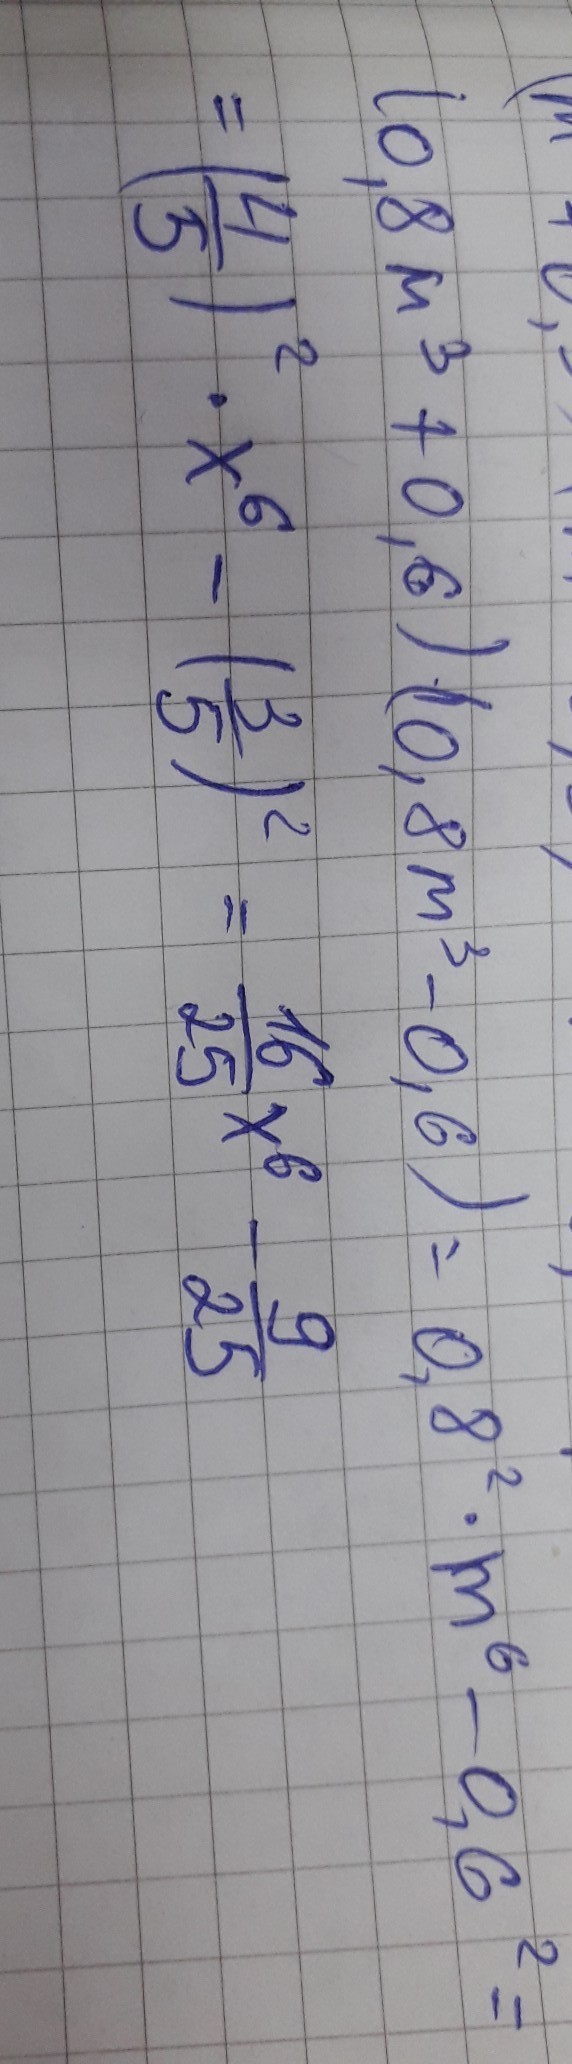 (0,8m³+0,6)(0,8m³-0,6)=0,8²·m⁶-0,6²=
=(4/5)²·x⁶-(3/5)²=16/25x⁶-9/25